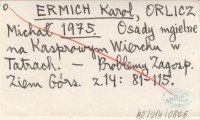 o ERMICH Karol, ORLICZ
Michał 1975. Osady mgielne
na Kasprowym Wierchu w
Tatrach. — Problemy Zagosp.
Ziem Górs. z.14: 81-115.